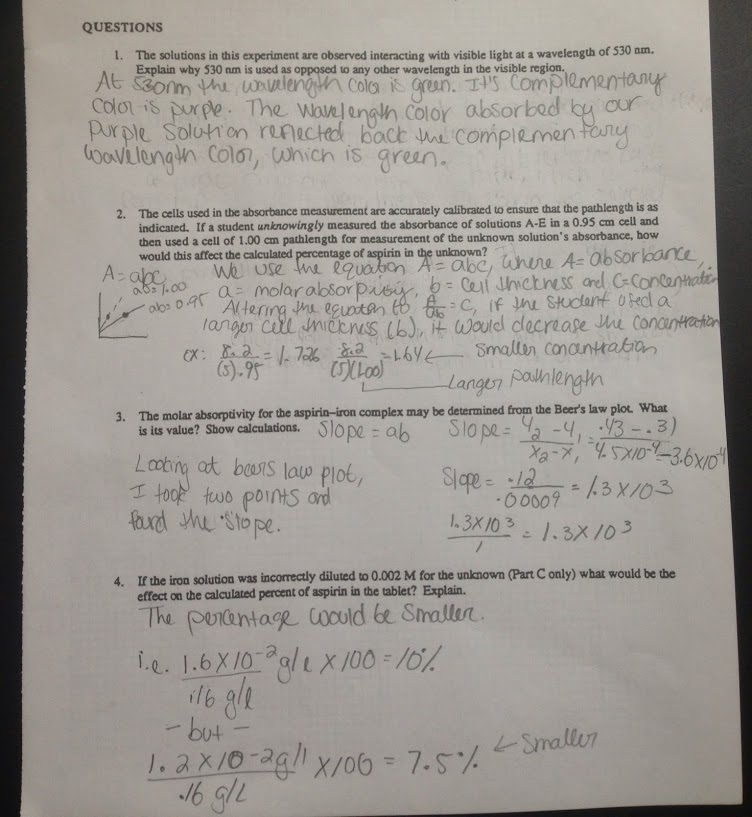 QUESTIONS
1. The solutions in this experiment are observed interacting with visible light at a wavelength of 530 nm.
Explain why 530 nm is used as opposed to any other wavelength in the visible region.
At 530nm the wavelength color is green. It's complementary
color is purple. The wavelength color absorbed by our
Purple Solution reflected back the complementary
wavelength color, which is green.
2. The cells used in the absorbance measurement are accurately calibrated to ensure that the pathlength is as
indicated. If a student unknowingly measured the absorbance of solutions A-E in a 0.95 cm cell and
then used a cell of 1.00 cm pathlength for measurement of the unknown solution's absorbance, how
would this affect the calculated percentage of aspirin in the unknown?
A=abc
ab=1.00
ab=0.95
We use the equation A=abc, where A=absorbance,
a=molar absorptivity, b=cell thickness and C=concentration
Altering the equation to A/ab=C, if the student used a
larger cell thickness (b), it would decrease the concentration
ex: 8.2/(5).95=1.726 8.2/(5)(1.00)=1.64 ← Smaller concentration
Larger pathlength
3. The molar absorptivity for the aspirin–iron complex may be determined from the Beer's law plot. What
is its value? Show calculations.
Slope = ab Slope = Y2-Y1/X2-X1 = .43-.31/4.5X10-4-3.6X10-4
Looking at beers law plot,
I took two points and
found the slope.
Slope = .12/.00009 = 1.3X103
1.3X103/1 = 1.3X103
4. If the iron solution was incorrectly diluted to 0.002 M for the unknown (Part C only) what would be the
effect on the calculated percent of aspirin in the tablet? Explain.
The percentage would be smaller.
i.e. 1.6X10-2g/l X100=10%
.16 g/l
-but-
1.2X10-2g/l X100 = 7.5% ← Smaller
.16 g/L